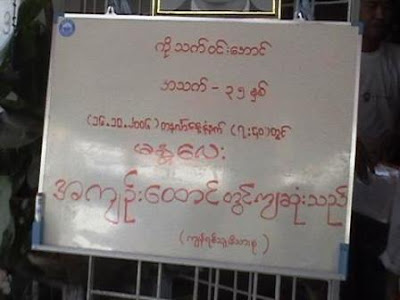 ကိုသက်ဝင်းအောင်
အသက် - ၃၅ နှစ်
(၁၆.၁၀.၂၀၀၆) တနင်္လာနေ့နံနက် (၇:၄၀) တွင်
မန္တလေး
အကျဉ်းထောင်တွင်ကျဆုံးသည်
(ကျန်ရစ်သူမိသားစု)